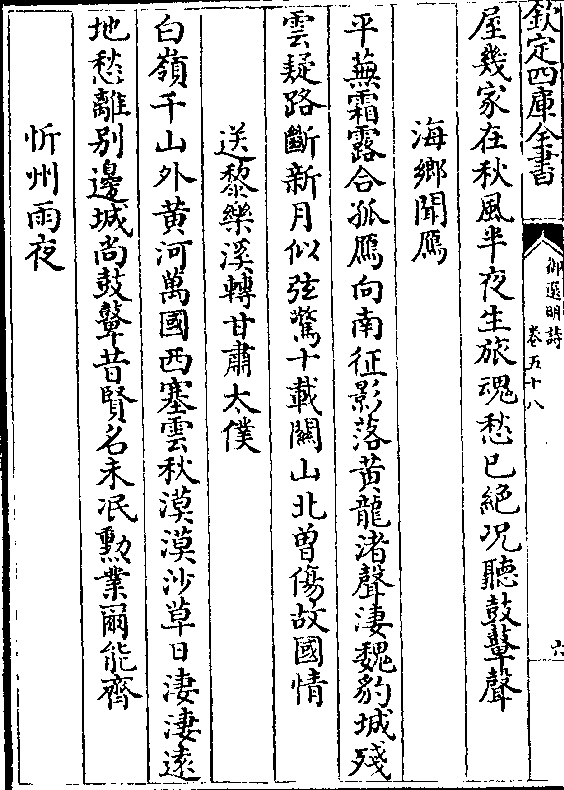 欽定四庫全書
御選明詩
卷五十八
六
屋幾家在秋風半夜生旅魂愁已絶况聽鼓鼙聲
海鄉聞鴈
平蕪霜露合孤鴈向南征影落黄龍渚聲淒魏豹城殘
雲疑路斷新月似弦驚十載關山北曾傷故國情
送黎樂溪轉甘肅太僕
白嶺千山外黄河萬國西塞雲秋漠漠沙草日淒淒遠
地愁離别邊城尚鼓鼙昔賢名未泯勲業爾能齊
忻州雨夜